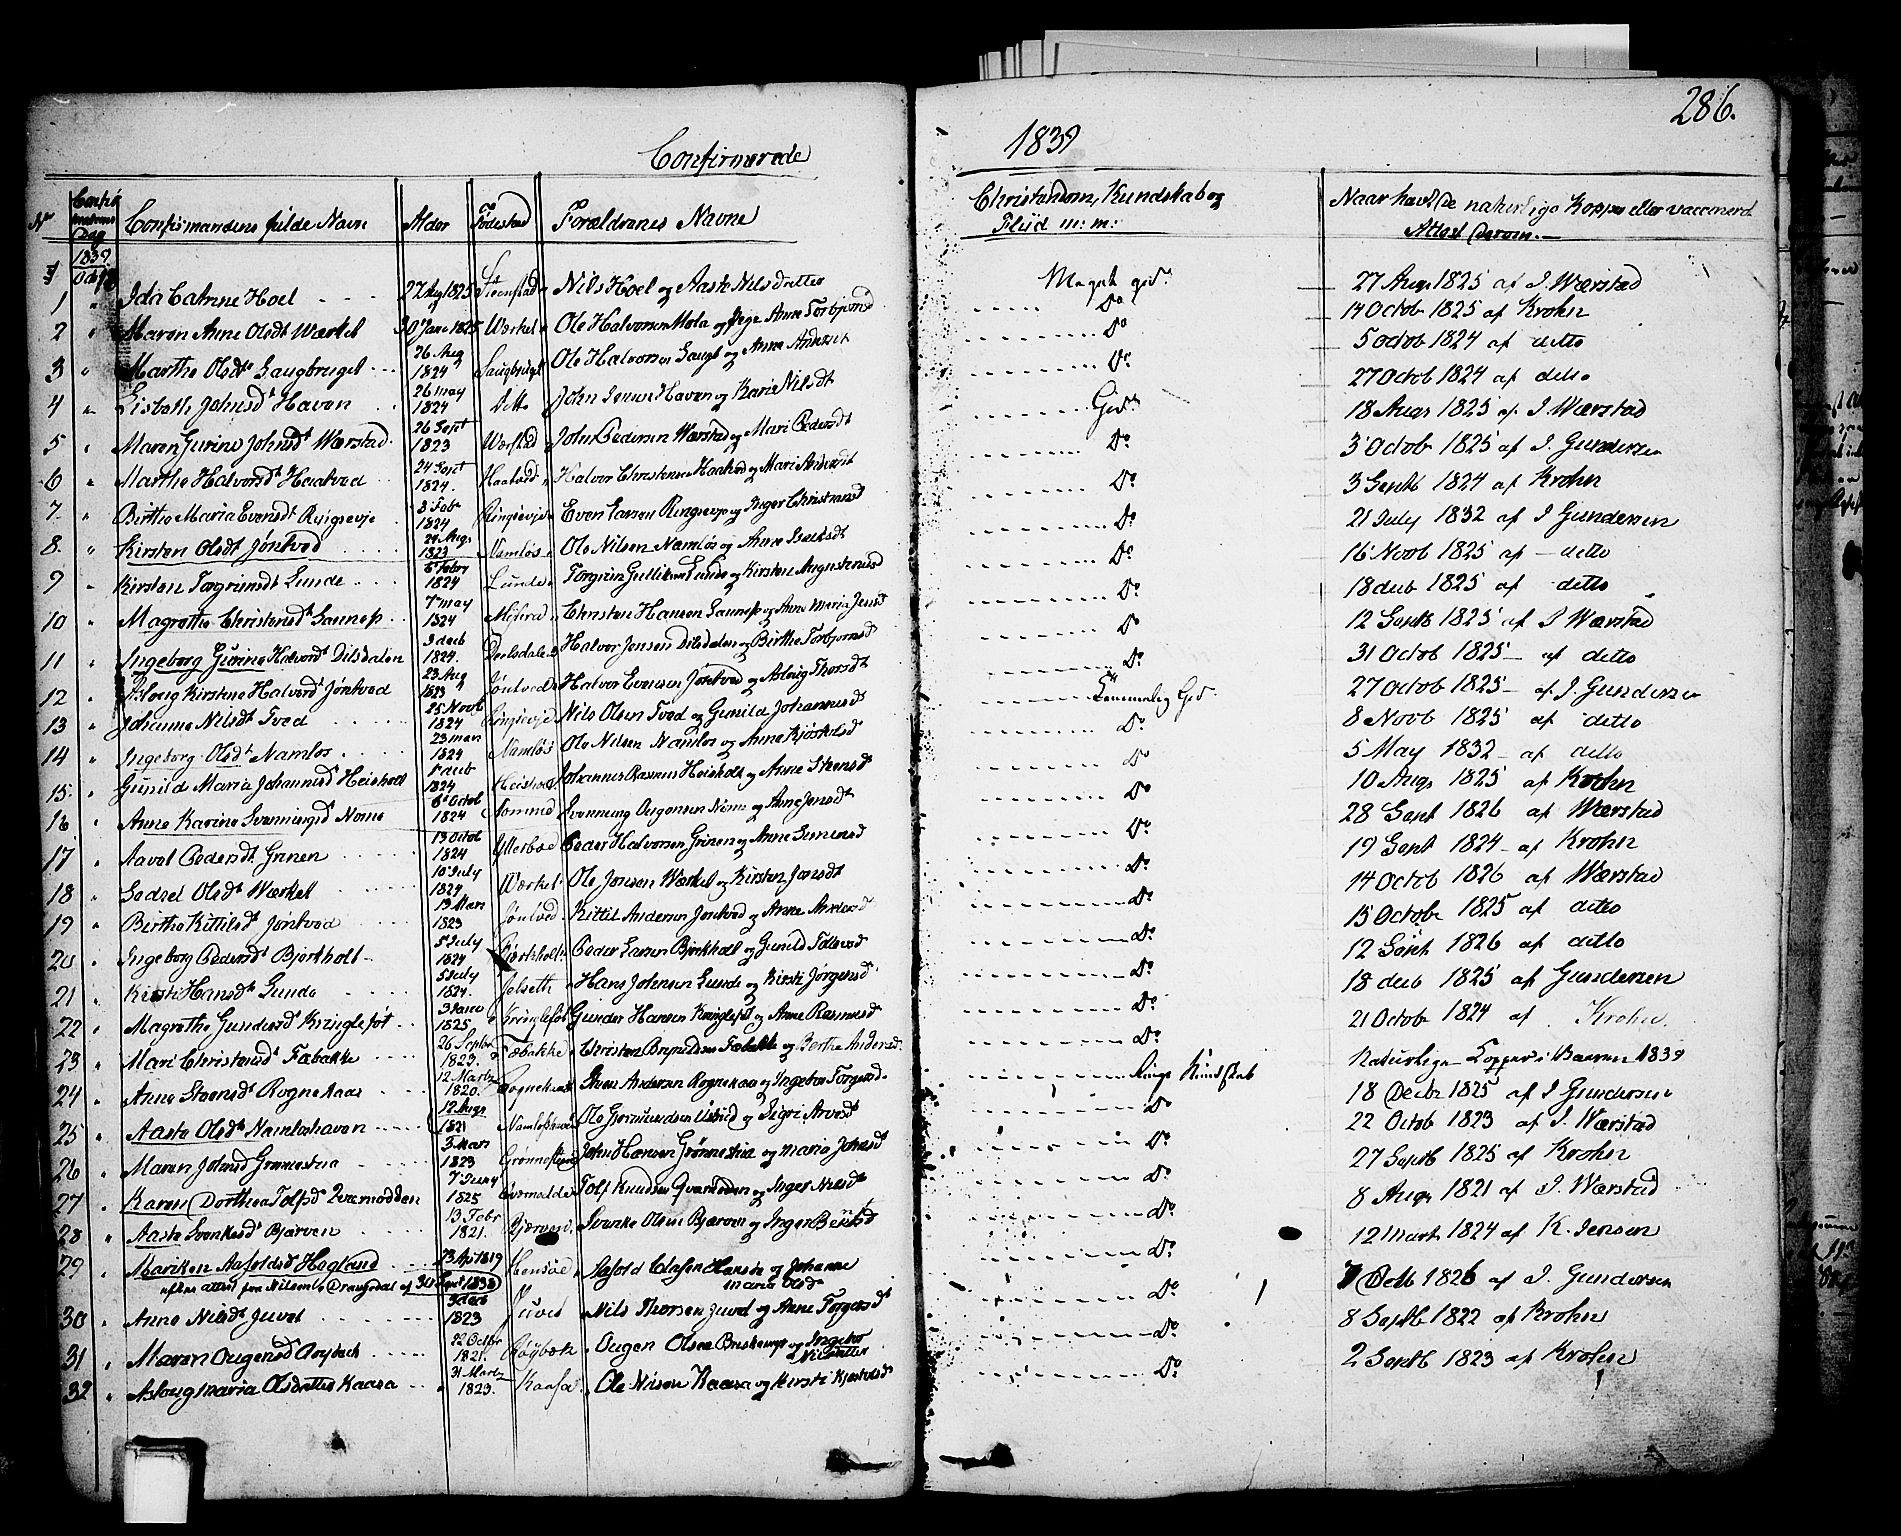 Confirmerede
1839
286.
No
Confirmations Dag
Confirmandens fulde Navn
Alder
Fødested
Forældrenes Navne
Christendom, Kundskab og
Fliid m: m:
Naar havt De naturlige Kopper eller vaccinerd
Attest Derom.
1839
Octb
1 Ida Catrine Hoel 27 Aug 1825 Steenstad Nils Hoel og Aaste Nilsdatter Meget god 27 Augs 1825 af I. Wærstad
2 Maren Anne Olsdt Wærket 30 Janr 1825 Wærket Ole Halvorsen og Anne Torbjørnsd Do 14 Octob 1825 af Krohn
3 Marthe Olsdt Saugbruget 26 Aug 1824 Saugbruget Ole Halvorsen Saugb og Anne Andersdt Do 5 octob 1824 af ditto
4 Lisbeth Johnsdt Haven 26 may 1824 Ditto John Haven og Karie Nilsdt Do 27 Octob 1824 af ditto
5 Maren Gurine Johnsdt Wærstad 26 Sept 1823 Værstad John Pedersen Wærstad og Mari Pedersdt God 18 Augs 1825 af I. Wærstad
6 Marthe Halvorsdt Haatved 24 Sept 1824. Haatved Halvor Christensen Haatved og Mari Andersdt Do 3 Octob 1825 af I. Gundersen
7 Birthe Maria Evensdt Ringsevje 8 Febr 1824 Ringsevje Even Larsen Ringsevje og Inger Christensd Do 3 Septb 1824 af Krohn
8. Kirsten Olsdt Jøntved 24 Augs 1823 Namløs Ole Nilsen Namløs og Anne Isaksdt Do 21 July 1832 af I Gundersen
9 Kirsten Torgrimsdt Lunde 6 Febry 1824 Lunde Torgrim Gulliksen Lunde og Kirsten Augustinusd Do 16 Novb 1825 af ditto
10 Magrethe Christensdt Sannes 7 may 1824 Christen Hansen Sannes og Anne Maria Jensd Do 18 decb 1825 af ditto
11 Ingeborg Gurine Halvordt Dilsdalen 3 decb 1824. Deelsdalen Halvor Jensen Dilsdalen og Birthe Torbjornsd Do 12 Septb 1825 af I Wærstad
12 Asloug Kirstene Halvordt Jøntved 23 Aug 1823 Jøntvedt Halvor Evensen Jøntved og Asloug Thorsdt Do 31 Octob 1825 af ditto
13 Johanne Nilsdt Tved 25 Novb 1824 Ringsevje Nils Olsen Tved og Gunild Johannesd Temmelig God 27 Octob 1825 af I. Gundersen
14 Ingeborg Olsdt Namløs 23 mars 1824 Namløs Ole Nilsen Namløs og Anne Kjøstelsd Do 8 Novb 1825 af ditto
15. Gunild Maria Johannesd Heisholt 1 decb 1824 Heisholt Johannes Rasmus Heisholt og Anne Steensd Do 5 May 1832 af ditto
16 Anne Karine Svenningsd Nome 6 Octob 1824 Nomme Svennung Ougonsen Nome og Anne Jensdt Do 10 Augs 1825 af Krohn
17 Aavol Pedersdt Grinen 13 Octob 1824 Ytterbøe Peder Halvorsen Grinen og Anne Simensd Do 28 Sept 1826 af Wærstad
18 Sedsel Olsdt Wærket 10 July 1824 Wærket Ole Jonsen Wærket og Kirsten Jonsdt Do 19 Sept 1824 af Krohn
19 Birthe Kittilsdt Jøntved 19 Mars 1823 Jøntved Kittil Andersen Jøntved og Anne Andersd Do 14 Octob 1826 af Wærstad
20 Ingeborg Pedersdt Bjørkholt 5 July 1824 Bjørkholt Peder Larsen Bjørkholt og Gunild Tollevsd Do 15 Octobr 1825 af ditto
21 Kirsti Hansdt Lunde 5 July 1824. Jelseth Hans Johnsen Lunde og Kirsti Jørgensd Do 12 Sept 1826 af ditto
22 Magrethe Gundersd Kringlefot 3 Janr 1825 Kringlefot Gunder Hansen Kringlefot og Anne Rasmusd Do 18 decb 1825 af Gundersen
23 Mari Christensdt Fæbakke 26 Septbr 1823. Fæbakke Christen Fæbakke og Berthe Andersd. Do 21 Octob 1824 af Krohn
24 Anne Steensd Rognekaas 12 Martz 1820. Rognekaas Steen Andersen Rognekaas og Ingebor Torgersd. Ringe Kundskab Naturlige Kopper i Baaren 1839
25 Aaste Olsdt Namloshaven 12 Augs 1821 Ole og Sigri Arvesdt Do 18 Decbr 1825 af I Gundersen
26 Maren Johnsd Grønnestua 3 Mars 1823 Grønnestua John Hansen Grønnestua og maria Johnsdt Do 22 Octob 1823 af I. Wærstad
27 Karen Dorthea Tolfsd Qværnodden 7 1825 Tolf Knudsen og Inger Nilsdt Do 27 Septb 1825 af Krohn
28 Aaste Svenkesdt Bjærven 13 Febr 1821. Bjærven Svenke Olsen Bjærven og Inger Do 8 Augs 1821 af I. Wærstad
29 Mariken Aasoldsd Hogland 23 Apl 1819 Aasold Olafsen Hansøe og Johanne maria Olsdt Do 12 Mart 1824 af K. Jensen
30 Anne Nilsdt Juvet 3 decb 1823 Juvet Nils Thorsen Juvet og Anne Torgersdt Do 7 Octb 1826 af I. Gundersen
31 Maren Ougensd Røybæk 22 Octbr 1821 Røybæk Ougen Olsen og Ingebor Nilsdatter Do 8 Septb 1822 af Krohn
32 Aslougmaria Olsdatter Kaasa 31 Martz 1823. Kaasa Ole Nilsen Kaasa og Kirsti Kjøstolsdt Do 2 Septb 1823 af Krohn